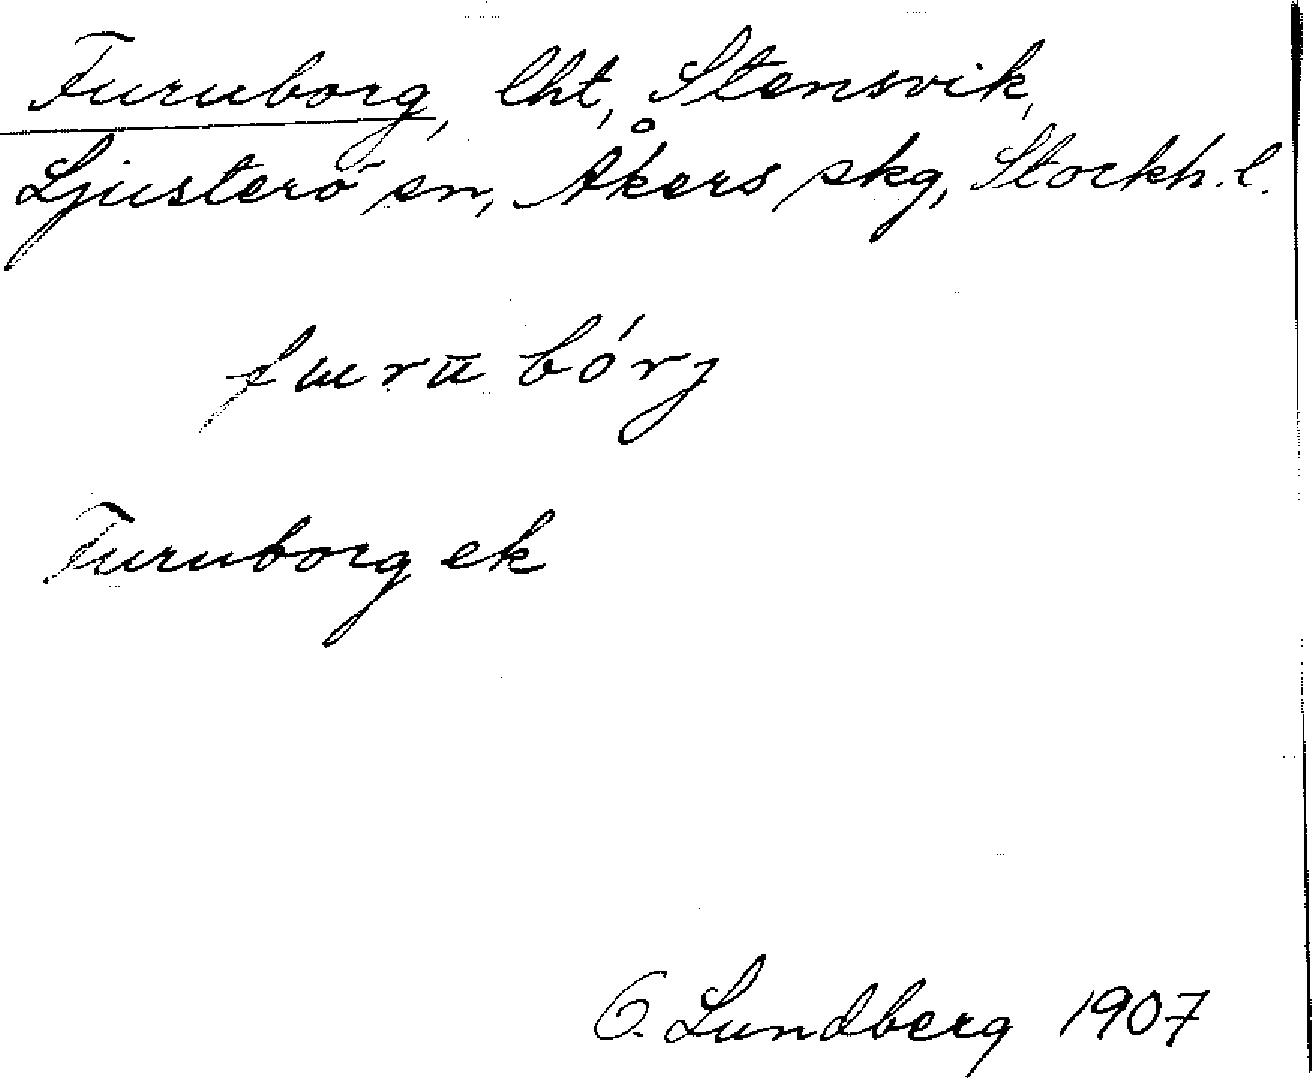 Furuborg, lht, Stensvik,
Ljusterö sn, Åkers skg, Stockh. l.
furū bórj
Furuborg ek
O. Lundberg 1907